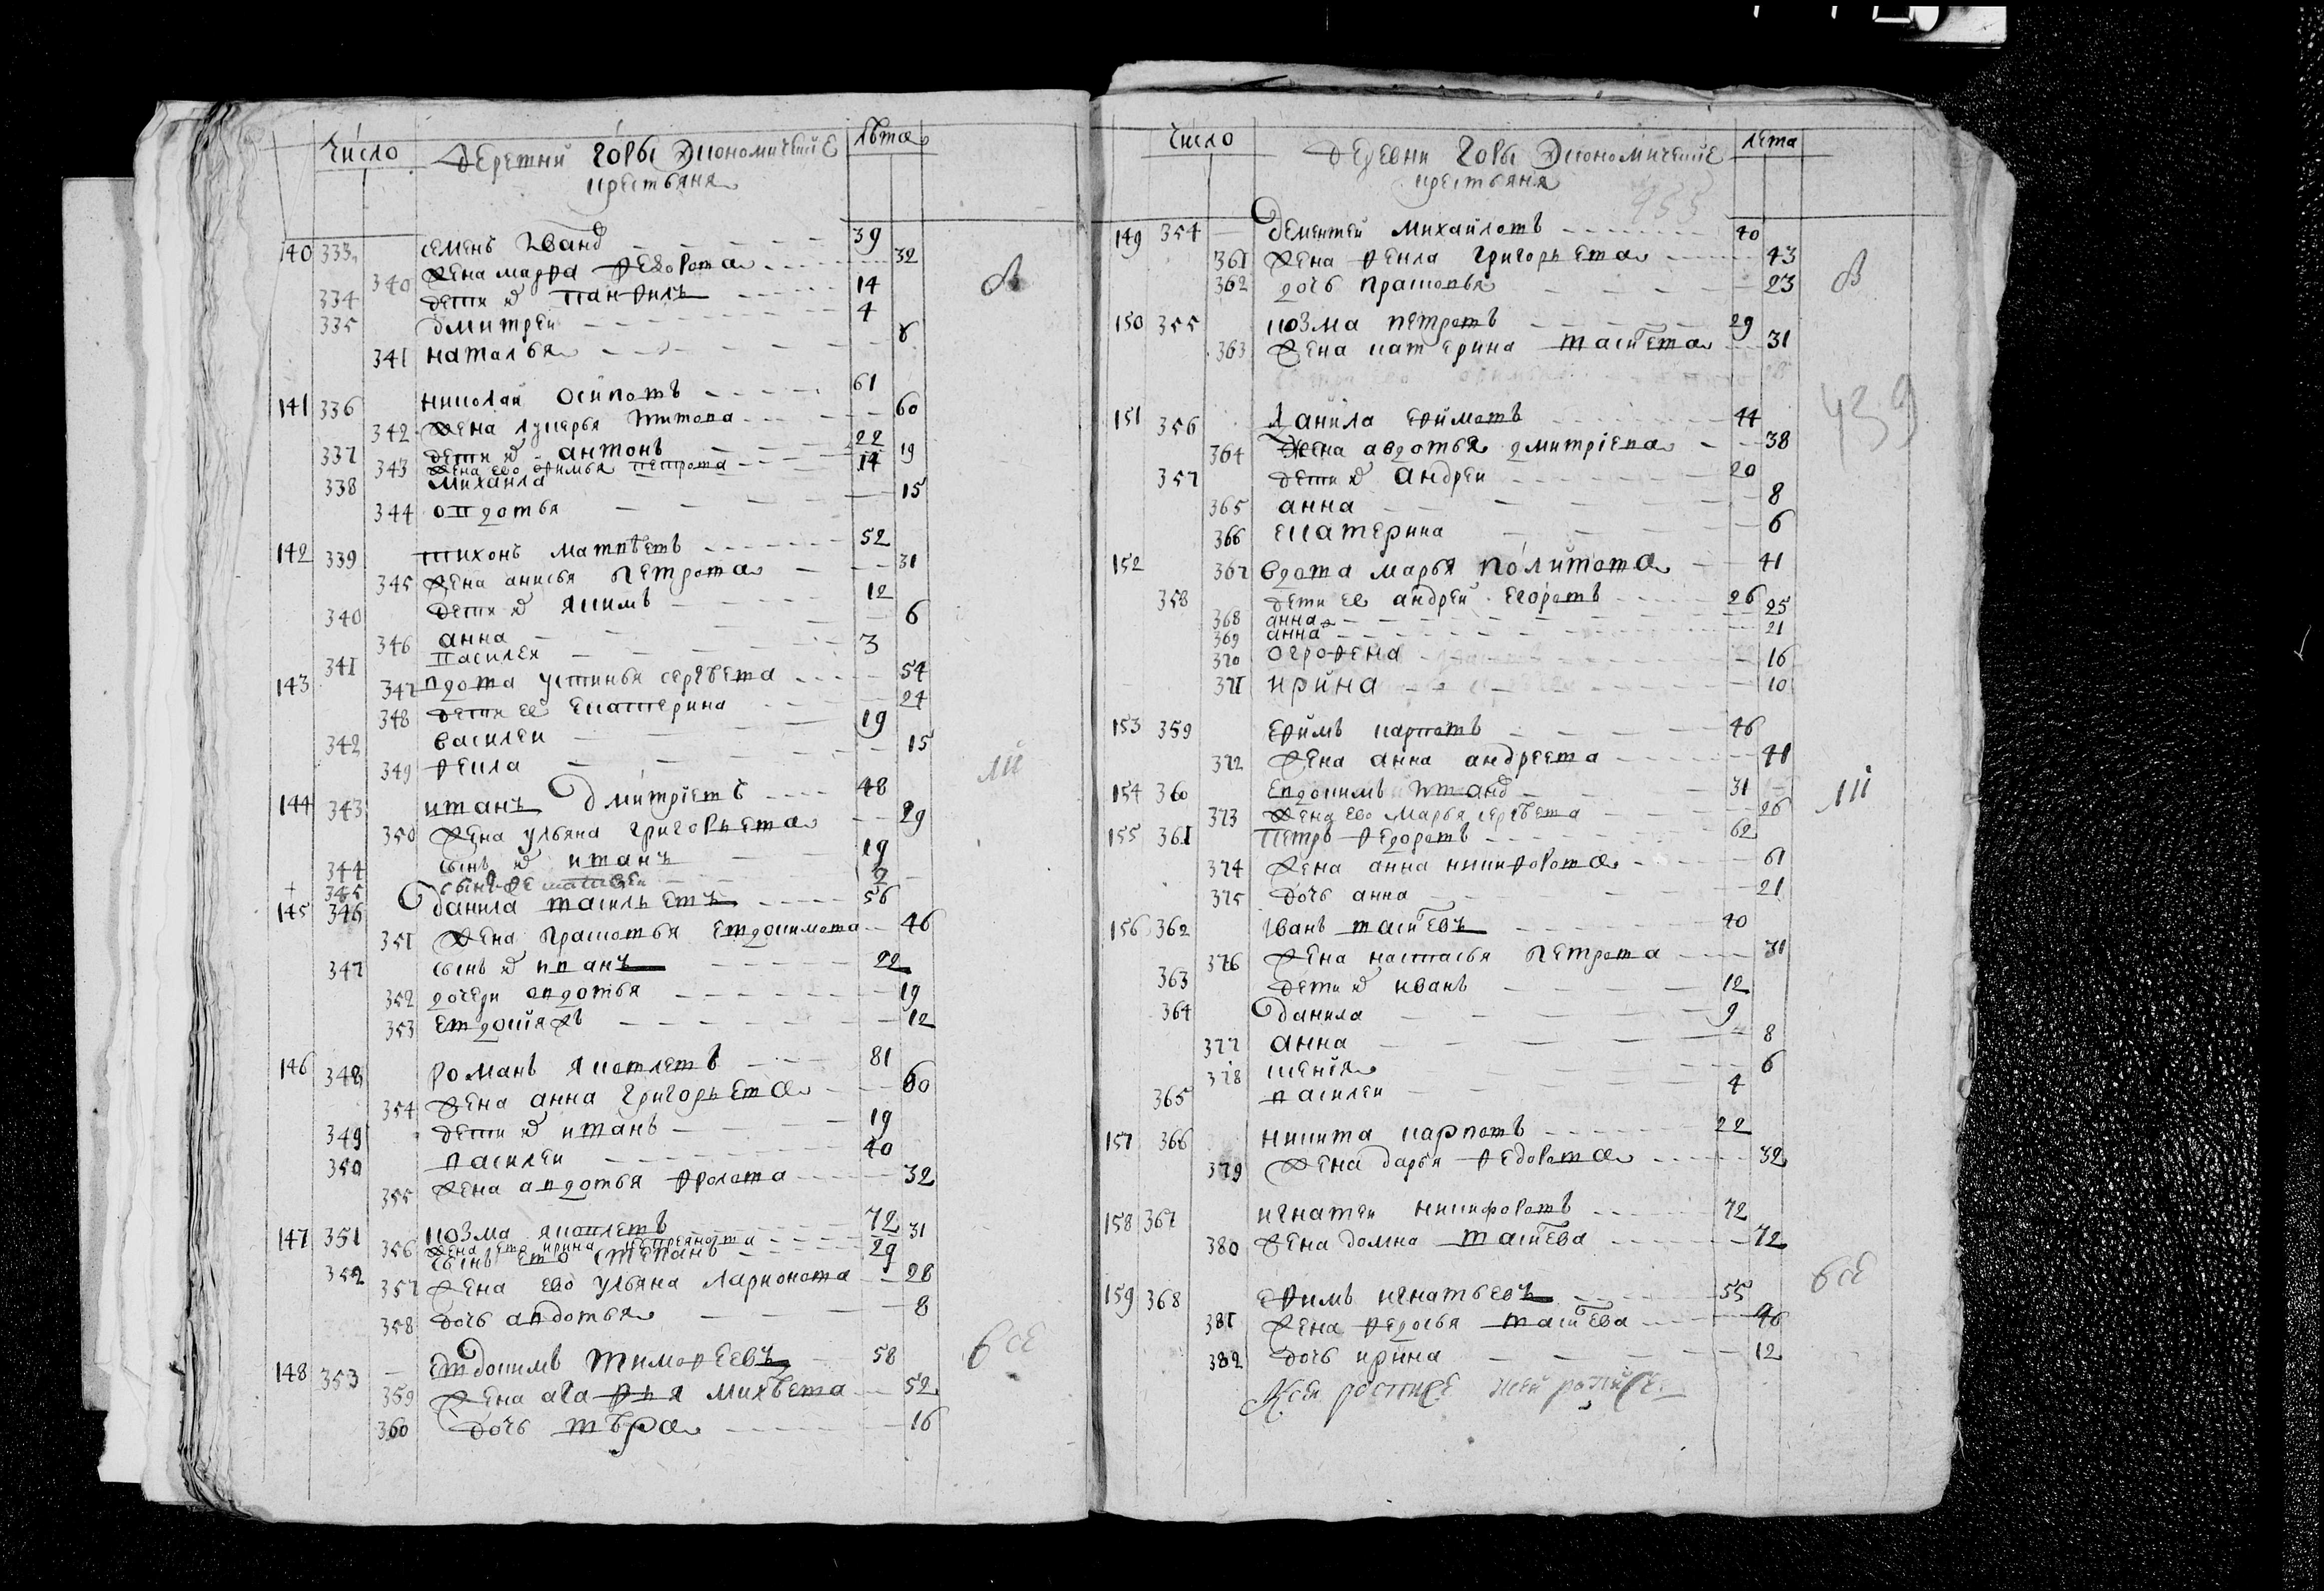 Число деревни горы экономические лѣта
крестьяня
140 333 семенъ Иванъ 39
340 жена марфа федорова 32
334 дети ѿ панфилъ 14
335 дмитреи 4
341 наталья 8
141 336 николаи осиповъ 61
342 жена лукерья титова 60
337 дети ѿ антонъ 22
343 жена ево офимья петрова 19
338 михаила 14
344 овдотья 15
142 339 тихонъ матвѣевъ 52
345 жена анисья петрова 31
340 дети ѿ якимъ 12
346 анна 6
341 василеи 3
143 347 вдова устинья сергѣева 54
348 дети ее екатерина 24
342 василеи 19
349 фекла 15
144 343 иванъ дмитриевъ 48
350 жена ульяна григорьева 29
344 сынъ ѿ иванъ 19
345 2
145 346 данила васильевъ 56
351 жена прасковья евдокимова 46
347 сынъ ѿ иванъ 22
352 дочери авдотья 19
353 евдокия 12
146 348 романъ яковлевъ 81
354 жена анна григорьева 60
349 дети ѿ иванъ 19
350 василеи 40
355 жена авдотья фролова 32
147 351 козма яковлевъ 72
356 жена ево ирина 31
352 сынъ ево степанъ 29
357 жена ево ульяна ларионова 28
358 дочь авдотья 8
148 353 евдокимъ тимофеевъ 58
359 жена агафья михѣева 52
360 дочь вѣра 16
всѣ
Число деревни горы экономические лета
крестьяня
149 354 дементеи михаиловъ 40
361 жена фекла григорьева 43
362 дочь прасковья 23
150 355 козма петровъ 29
363 жена катерина васильева 31
439
151 356 данила ефимовъ 44
364 жена авдотья дмитриева 38
357 дети ѿ андреи 20
365 анна 8
366 екатерина 6
152 367 вдова марья поликова 41
358 дети ее андреи егоровъ 26
368 анна 25
369 анна 21
370 огрофена 16
371 ирина 10
153 359 ефимъ карповъ 46
372 жена анна андреева 41
154 360 евдокимъ иванъ 31
373 жена ево марья сергѣева 26
155 361 петръ федоровъ 62
374 жена анна никифорова 61
375 дочь анна 21
156 362 иванъ васильевъ 40
376 жена настасья петрова 31
363 дети ѿ иванъ 12
364 данила 9
377 анна 8
378 ксения 6
365 василеи 4
157 366 никита карповъ 22
379 жена дарья федорова 32
158 367 игнатеи никифоровъ 72
380 жена домна васильева 72
159 368 ефимъ игнатьевъ 55
381 жена федосья васильева 46
382 дочь ирина 12
всѣ